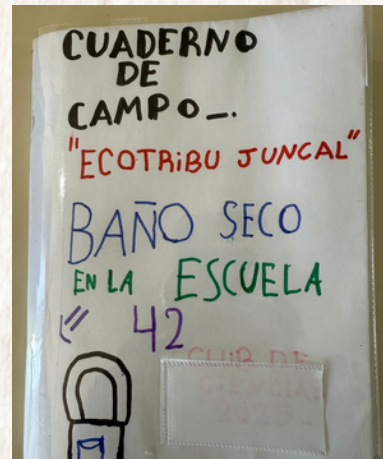 CUADERNO
DE
CAMPO_.
"ECOTRiBU JUNCAL"
BAÑO SECO
EN LA ESCUELA
42
CLUB DE
CIENCIAS